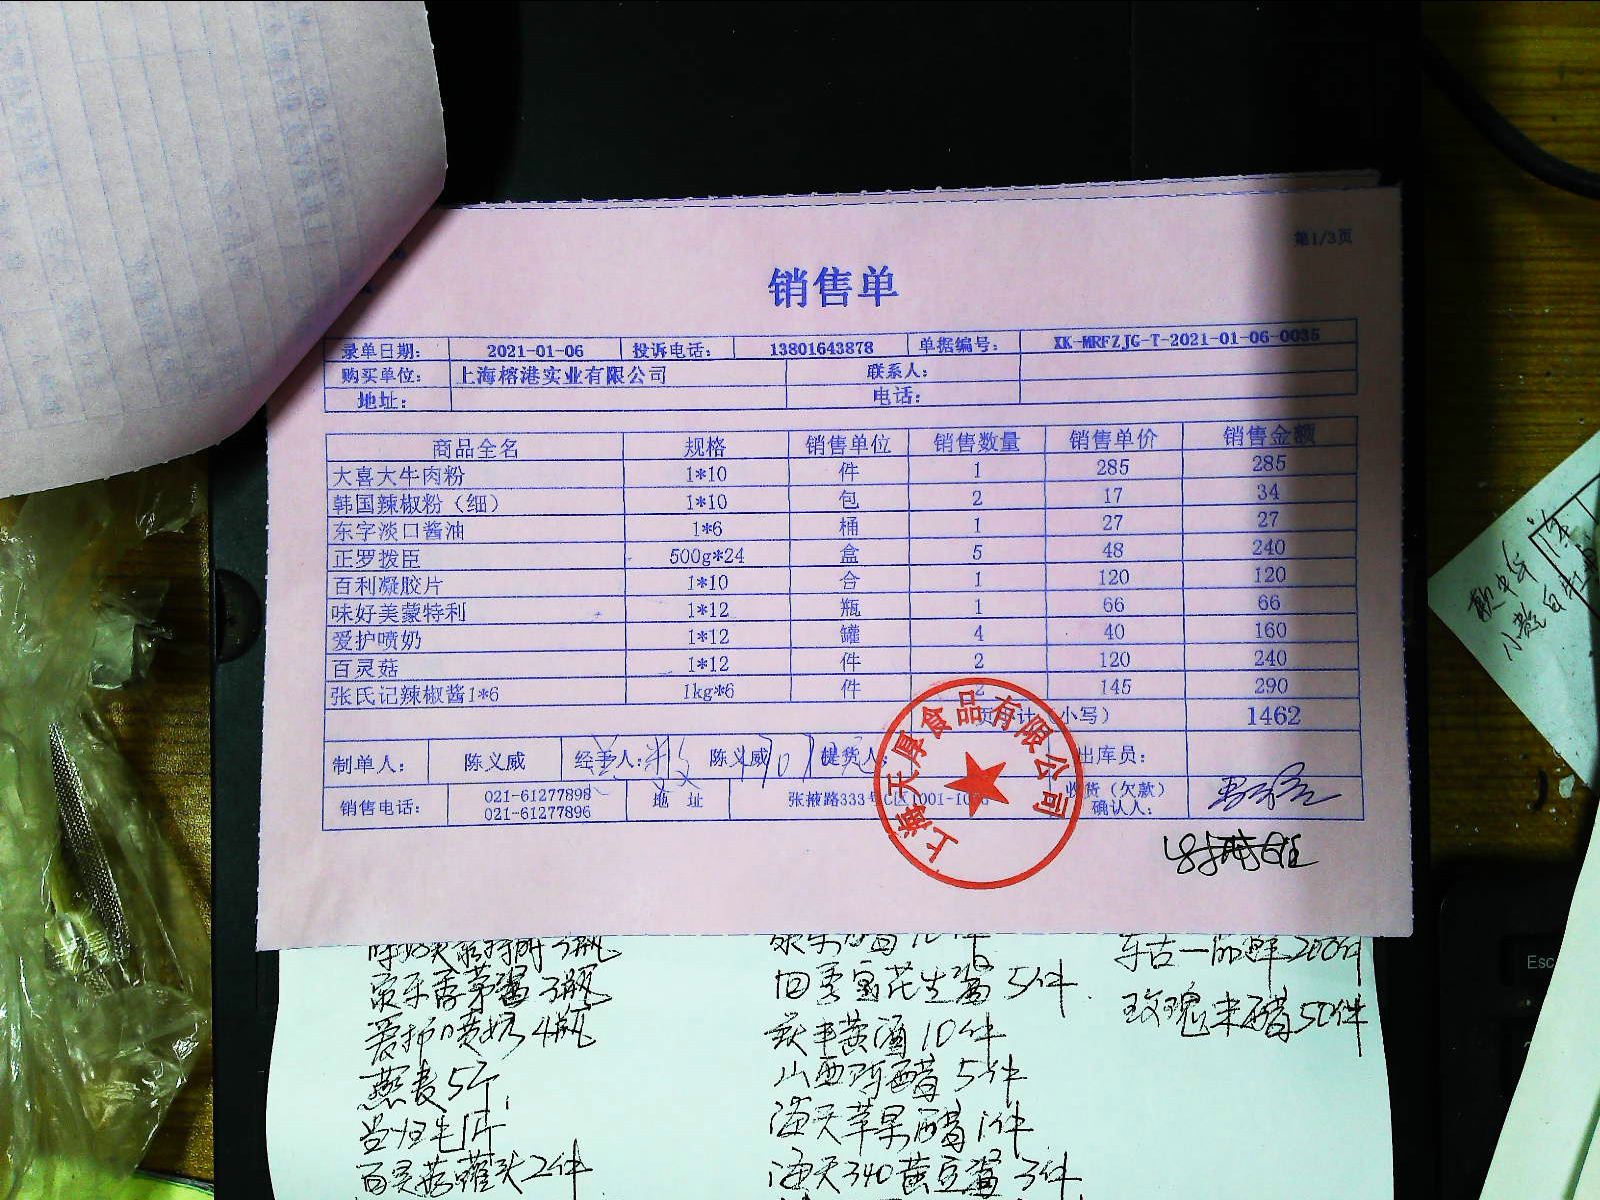 第1/3页
销售单
录单日期： 2021-01-06 投诉电话： 13801643878 单据编号： XK-MRFZJG-T-2021-01-06-0035
购买单位： 上海榕港实业有限公司 联系人：
地址： 电话：
商品全名 规格 销售单位 销售数量 销售单价 销售金额
大喜大牛肉粉 1*10 件 1 285 285
韩国辣椒粉（细） 1*10 包 2 17 34
东字淡口酱油 1*6 桶 1 27 27
正罗拨臣 500g*24 盒 5 48 240
百利凝胶片 1*10 合 1 120 120
味好美蒙特利 1*12 瓶 1 66 66
爱护喷奶 1*12 罐 4 40 160
百灵菇 1*12 件 2 120 240
张氏记辣椒酱1*6 1kg*6 件 2 145 290
（小写） 1462
制单人： 陈义威 经手人： 陈义威 提货人： 出库员：
销售电话： 021-61277898 021-61277896 地 址 张掖路333号C区1001 收货（欠款）确认人：
上海天厚食品有限公司
3瓶
爱护喷奶4瓶
燕麦5个
百灵菇罐头2件
四季宝花生酱5件
黄酒10件
山西陈醋5件
海天苹果醋1件
海天340黄豆酱3件
东古一品鲜200件
玫瑰米醋50件